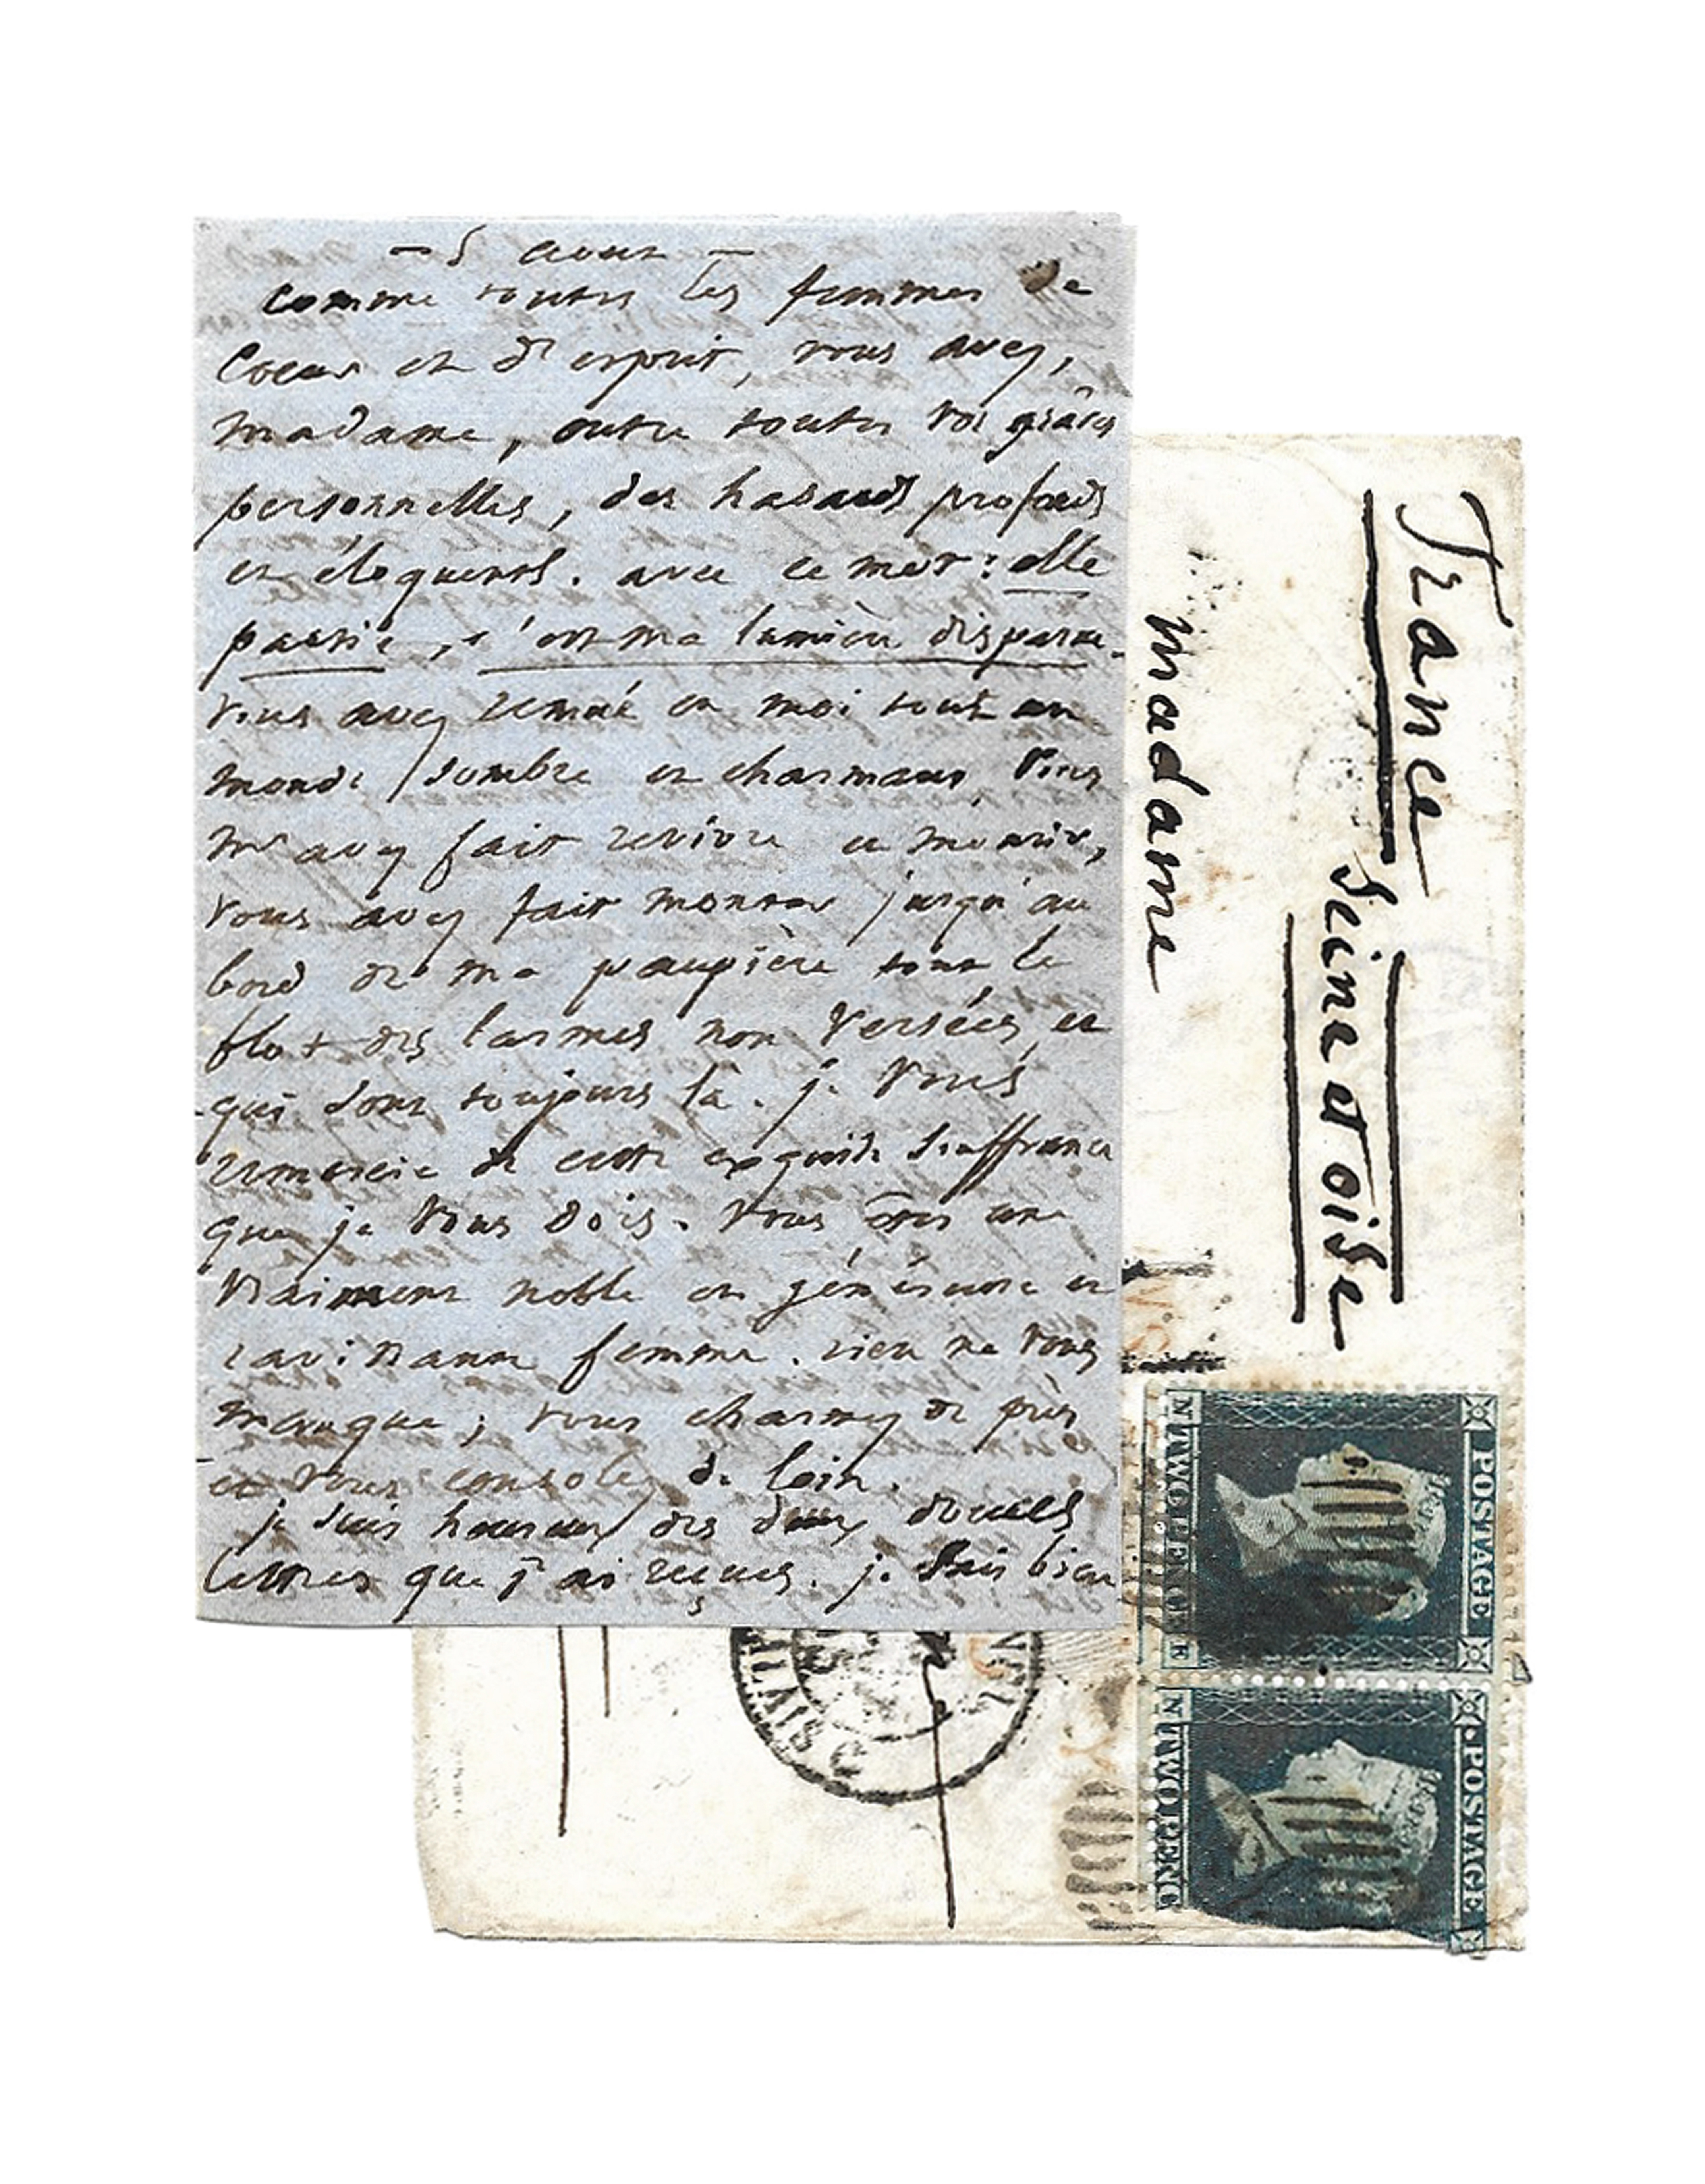 — 5 août —
comme toutes les femmes de
coeur et d'esprit, vous avez,
madame, outre toutes vos grâces
personnelles, des hasards profonds
et éloquents. avec ce mot : elle
partie, c'est ma lumière disparue.
vous avez remué en moi tout un
monde sombre et charmant, vous
m'avez fait revivre et mourir,
vous avez fait monter jusqu'au
bord de ma paupière tout le
flot des larmes non versées et
qui sont toujours là. je vous
remercie de cette exquise souffrance
que je vous dois. vous êtes une
vraiment noble et généreuse et
ravissante femme. rien ne vous
manque ; vous charmez de près
et vous consolez de loin.
je suis heureux des deux douces
lettres que j'ai reçues. je sais bien
France
Seine et oise
madame
POSTAGE
TWO PENCE
POSTAGE
TWO PENC